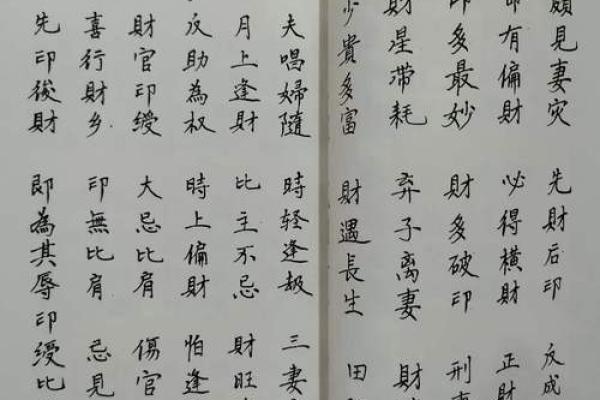 頗見妻灾 先財后印 反成
命有偏財 必得橫財 正財
印多最妙 財多破印 刑
財星滞耗 弃子离妻 財
少貴多富 財遇長生 田
夫唱婦隨 時轻逢劫 三妻
月上逢財 比主不忌 財旺
反助為权 時上偏財 怕逢
財官印绶 大忌比肩 傷官
喜行財乡 印無比肩 忌見
先印後財 即為其辱 印绶比